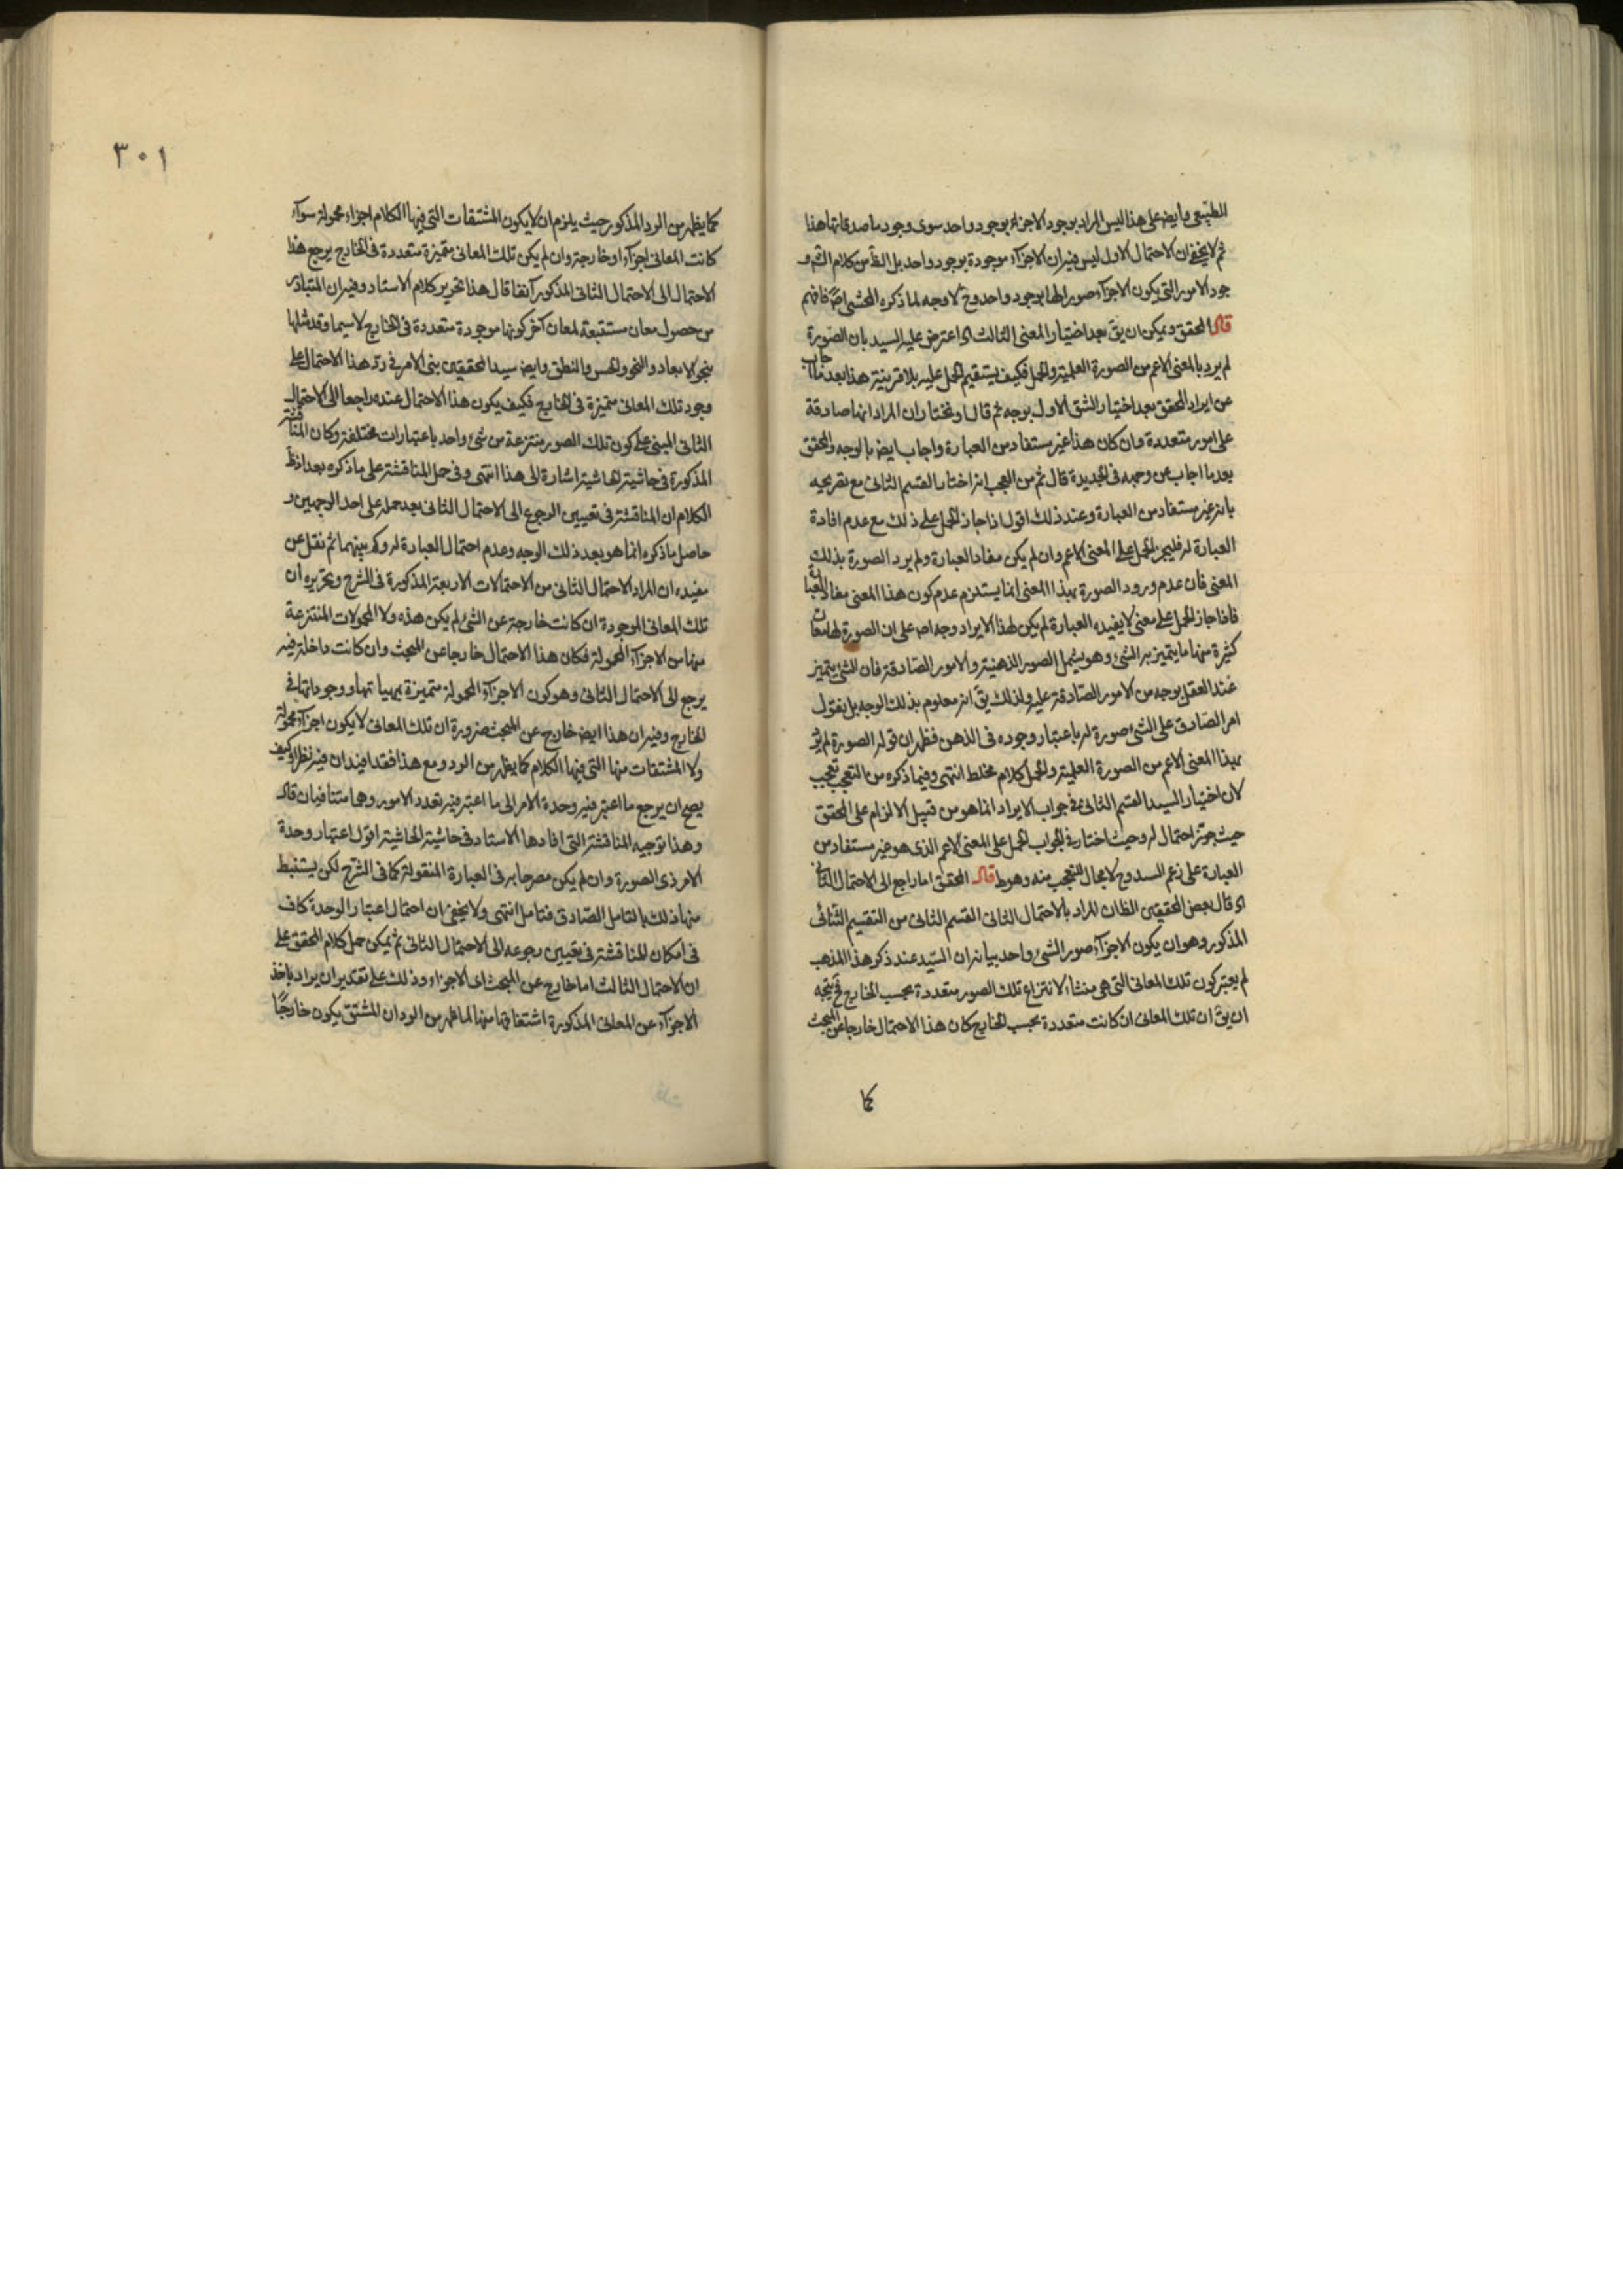 الطبيعي وايض على هذا ليس المراد بوجود الاجزاء بوجود واحد سوى وجود ما صدقاتها هذا
ثم لا يخفى ان الاحتمال الاول ليس فيه ان الاجزاء موجودة بوجود واحد بل الظ من كلام الشم و
جود الامور التي يكون الاجزاء صورا لها بوجود واحد وح لا وجه لما ذكره المحشي اصلا فافهم
قال المحقق ويمكن ان يق بعد اختيار المعنى الثالث اى اعترض عليه السيد بان الصورة
لم يرد بالمعنى الاعم من الصورة العلمية والحمل فكيف يستقيم الحمل عليه بلا قرينة هذا بعد ما اجاب
عن ايراد المحقق بعد اختيار الشق الاول بوجه ثم قال ونختار ان المراد انها صادقة
على امور متعددة وان كان هذا غير مستفاد من العبارة واجاب ايض بالوجه والمحقق
بعد ما اجاب عن وجهه في الجديدة قال ثم من العجب انه اختار القسم الثانى مع تصريحه
بانه غير مستفاد من العبارة وعند ذلك اقول اذا جاز الحمل على ذلك مع عدم افادة
العبارة له فليجز الحمل على المعنى الاعم وان لم يكن مفاد العبارة ولم يرد الصورة بذلك
المعنى فان عدم ورود الصورة بهذا المعنى انما يستلزم عدم كون هذا المعنى مفاد العبارة
فاذا جاز الحمل على معنى لا يفيده العبارة لم يكن لهذا الايراد وجه اصلا على ان الصورة لها معان
كثيرة منها ما يتميز به الشئ وهو يشمل الصور الذهنية والامور الصادقة فان الشئ يتميز
عند العقل بوجه من الامور الصادقة عليه ولذلك يق انه معلوم بذلك الوجه بل يقول
امر الصادق على الشئ صورة له باعتبار وجوده في الذهن فظهر ان قوله الصورة لم يرد
بهذا المعنى الاعم من الصورة العلمية والحمل كلام مخلط انتهى وفيما ذكره من التعجب تعجب
لان اختيار السيد القسم الثانى في جواب الايراد انما هو من قبيل الالزام على المحقق
حيث جوز احتمال له وحيث اختار في الجواب الحمل على المعنى الاعم الذى هو غير مستفاد من
العبارة على زعم السيد وح لا مجال للتعجب منه وهو ط قال المحقق اما راجع الى الاحتمال الثانى
اه قال بعض المحققين الظان المراد بالاحتمال الثانى القسم الثانى من التقسيم الثنائى
المذكور وهو ان يكون الاجزاء صور الشئ واحد بيانه ان السيد عند ذكر هذا المذهب
لم يعتبر كون تلك المعانى التى هى منشاء لانتزاع تلك الصور متعددة بحسب الخارج فح يتجه
ان يق ان تلك المعانى ان كانت متعددة بحسب الخارج كان هذا الاحتمال خارجا عن المبحث
كما
٣٠١
كما يظهر من الرد المذكور حيث يلزم ان لا يكون المشتقات التى فيها الكلام اجزاء محمولة سواء
كانت المعانى اجزاء او خارجة وان لم يكن تلك المعانى متميزة متعددة في الخارج يرجع هذا
الاحتمال الى الاحتمال الثانى المذكور آنفا قال هذا تحرير كلام الاستاد وفيه ان المتبادر
من حصول معان مستتبعة لمعان آخر كونها موجودة متعددة في الخارج لا سيما وقد مثلها
بنحو الابعاد والنمو والحس والنطق وايض سيد المحققين بنى الامر في رد هذا الاحتمال على
وجود تلك المعانى متميزة في الخارج فكيف يكون هذا الاحتمال عنده راجعا الى الاحتمال
الثانى المبنى على كون تلك الصور منتزعة من شئ واحد باعتبارات مختلفة وكان المناقشة
المذكورة في حاشية الحاشية اشارة الى هذا انتهى وفى حمل المناقشة على ما ذكره بعد اذ ظ
الكلام ان المناقشة في تعيين الرجوع الى الاحتمال الثانى بعد حمله على احد الوجهين و
حاصل ما ذكره انما هو بعد ذلك الوجه وعدم احتمال العبارة له وكم بينهما ثم نقل عن
مفيده ان المراد الاحتمال الثانى من الاحتمالات الاربعة المذكورة فى الشرح وتحريره ان
تلك المعانى الموجودة ان كانت خارجة عن الشئ لم يكن هذه ولا المحمولات المنتزعة
منها من الاجزاء المحمولة فكان هذا الاحتمال خارجا عن المبحث وان كانت داخلة فيه
يرجع الى الاحتمال الثانى وهو كون الاجزاء المحمولة متميزة بمهياتها ووجوداتها في
الخارج وفيه ان هذا ايض خارج عن المبحث ضرورة ان تلك المعانى لا يكون اجزاء محمولة
ولا المشتقات منها التى فيها الكلام كما يظهر من الرد ومع هذا فقد افيد ان فيه نظرا وكيف
يصح ان يرجع ما اعتبر فيه وحدة الامر الى ما اعتبر فيه تعدد الامور وهما متنافيان قال
وهذا توجيه المناقشة التى افادها الاستاد في حاشية الحاشية اقول اعتبار وحدة
الامر ذى الصورة وان لم يكن مصرحا به فى العبارة المنقولة كما فى الشرح لكن يستنبط
منها ذلك بالتامل الصادق فتامل انتهى ولا يخفى ان احتمال اعتبار الوحدة كاف
فى امكان المناقشة فى تعيين رجوعه الى الاحتمال الثانى ثم يمكن حمل كلام المحقق على
ان الاحتمال الثالث اما خارج عن المبحث اى الاجزاء وذلك على تقدير ان يراد باخذ
الاجزاء عن المعانى المذكورة اشتقاقها منها لما ظهر من الرد ان المشتق يكون خارجا